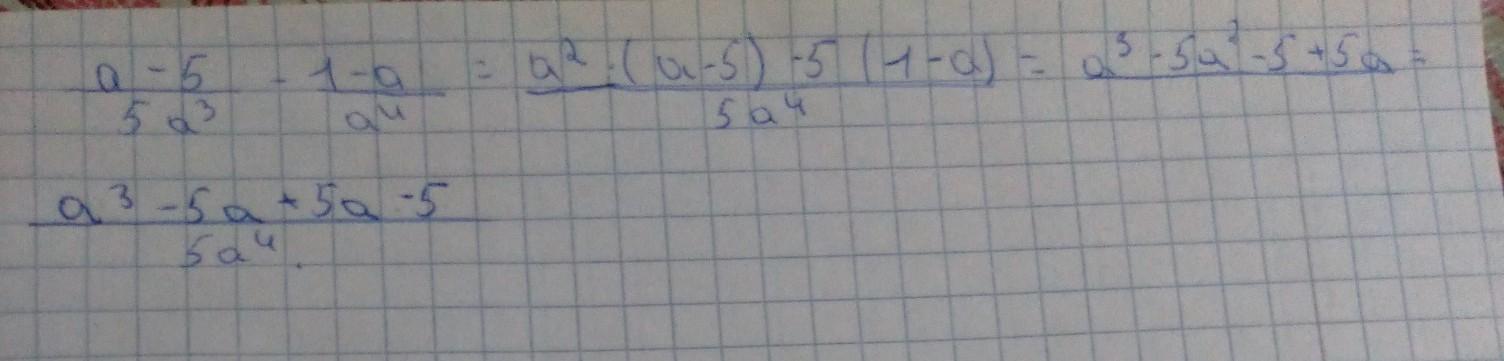 (a-5)/(5a³) - (1-a)/(a⁴) = (a²·(a-5)-5(1-a))/(5a⁴) = a³-5a²-5+5a =
(a³-5a+5a-5)/(5a⁴).